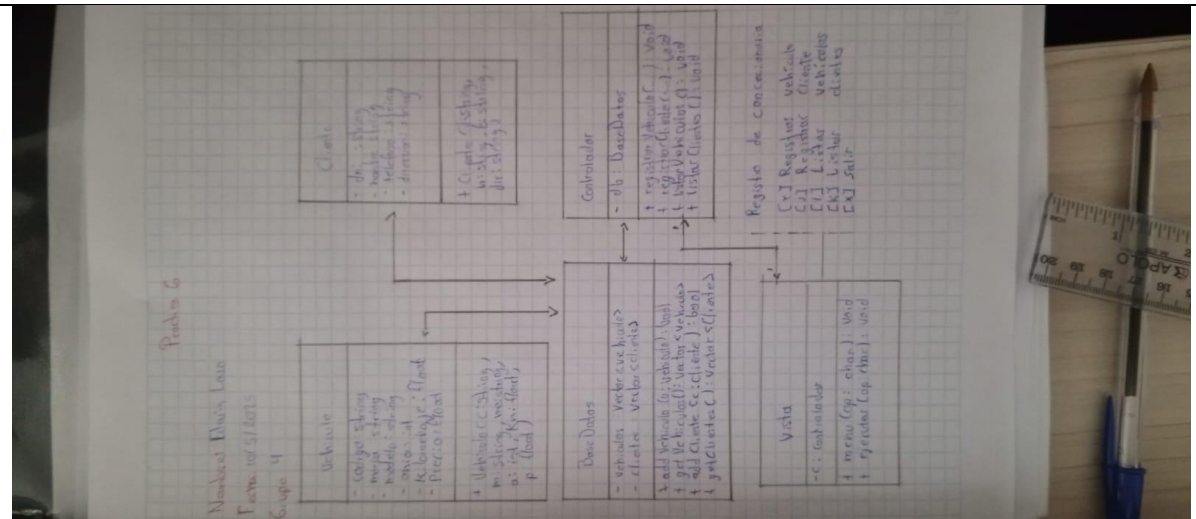 Practica 6
Fecha: 10/5/2025
Grupo 4
Vehiculo
- codigo string
- marca string
- modelo: string
- anio: int
- Kilometraje: float
- Precio: float
+ Vehiculo (c: string,
m: string, mo: string,
a: int, Km: float,
p: float)
Cliente
- dni: string
- nombre: string
- telefono: string
- direccion: string
n: string, t: string,
dir: string)
BaseDatos
- vehiculos Vector<vehiculo>
- clientes Vector<cliente>
+ add Vehiculo (v: Vehiculo): bool
+ get Vehiculos(): Vector<Vehiculo>
+ add Cliente (c: Cliente): bool
+ get Clientes(): Vector<Cliente>
Controlador
- db: BaseDatos
+ registrar Vehiculo(...): Void
+ registrar Cliente(...): Void
Vehiculos (): Void
+ listar Clientes (): Void
Vista
- c: Controlador
+ menu (op: char): Void
+ ejecutar (op: char): Void
Registro de
Registrar Vehiculo
[J] Registrar Cliente
Listar Vehiculos
[K] Listar clientes
[X] Salir
APOLO
20 19 18 17 16